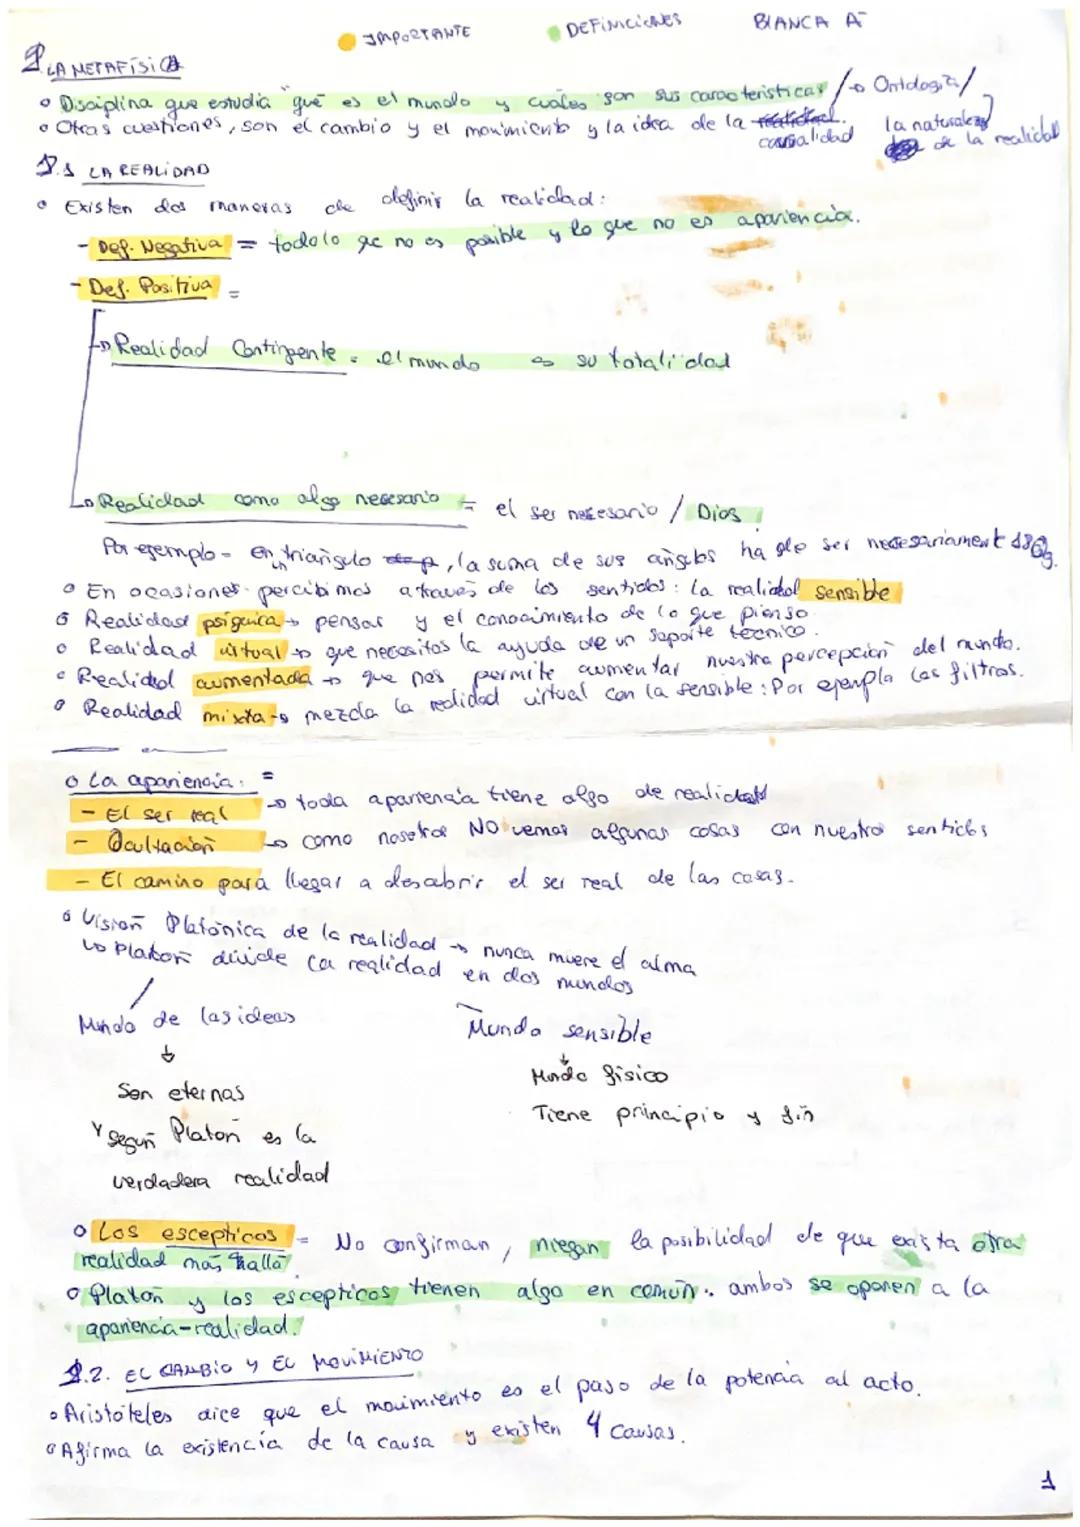 IMPORTANTE   DEFINICIONES   BIANCA A
1. LA METAFÍSICA
Disciplina que estudia "qué es el mundo y cuáles son sus características / → Ontología /
Otras cuestiones, son el cambio y el movimiento y la idea de la causalidad
la naturaleza de la realidad
1.1 LA REALIDAD
Existen dos maneras de definir la realidad:
- Def. Negativa = todo lo qe no es posible y lo que no es apariencia.
- Def. Positiva =
→ Realidad Contingente = el mundo → su totalidad
→ Realidad como algo necesario = el ser necesario / Dios
Por ejemplo = en un triángulo, la suma de sus ángulos ha de ser necesariament 180g.
En ocasiones percibimos a través de los sentidos: la realidad sensible
Realidad psíquica → pensar y el conocimiento de lo que pienso.
Realidad virtual → que necesitas la ayuda de un soporte técnico.
Realidad aumentada → que nos permite aumentar nuestra percepción del mundo.
Realidad mixta → mezcla la realidad virtual con la sensible: Por ejempla los filtros.
La apariencia: =
- El ser real → toda apariencia tiene algo de realidad
- Ocultación → como nosotros NO vemos algunas cosas con nuestros sentidos
- El camino para llegar a descubrir el ser real de las cosas.
Visión Platónica de la realidad → nunca muere el alma
↳ Platón divide la realidad en dos mundos
Mundo de las ideas   Mundo sensible
↓   ↓
Son eternas   Mundo físico
Y según Platón es la   Tiene principio y fin
verdadera realidad
Los escepticos = No confirman, niegan la posibilidad de que exista otra
realidad más hallá
Platón y los escepticos tienen algo en común: ambos se oponen a la
apariencia-realidad.
1.2. EL CAMBIO Y EL MOVIMIENTO
Aristóteles dice que el movimiento es el paso de la potencia al acto.
Afirma la existencia de la causa y existen 4 causas.
1